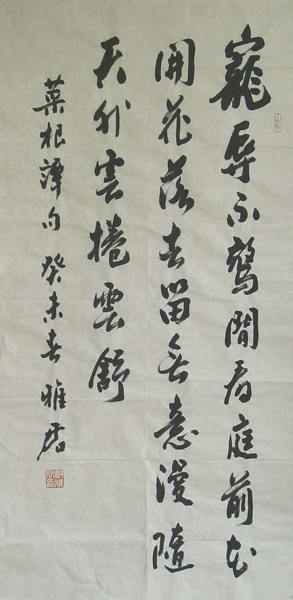 寵辱不驚閒看庭前花
開花落去留無意漫隨
天外雲捲雲舒
菜根譚句 癸未春 雅